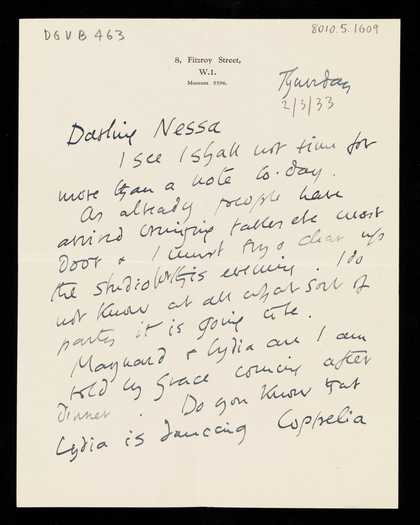 DGVB 463
8010.5.1609
8, Fitzroy Street,
W.1.
Museum 5596.
Thursday
2/3/33
Darling Nessa
I see I shall not time for
more than a note to-day.
As already people have
arrived bringing tables etc next
Door & I must try & clear up
the studio this evening. I do
not know at all what sort of
party it is going to be.
Maynard & Lydia are I am
told by Grace coming after
Dinner. Do you know that
Lydia is dancing Coppelia